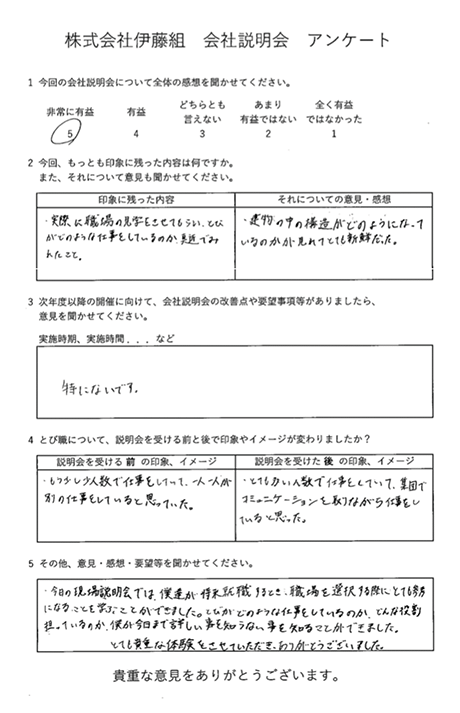 株式会社伊藤組　会社説明会　アンケート
1 今回の会社説明会について全体の感想を聞かせてください。
非常に有益　有益　どちらとも言えない　あまり有益ではない　全く有益ではなかった
5　4　3　2　1
2 今回、もっとも印象に残った内容は何ですか。
また、それについて意見も聞かせてください。
印象に残った内容
・実際に職場の見学をさせてもらい、とび
がどのような仕事をしているのか 見近でみ
れたこと。
それについての意見・感想
・建物の中の構造がどのようになって
いるのかが見れてとても新鮮だった。
3 次年度以降の開催に向けて、会社説明会の改善点や要望事項等がありましたら、
意見を聞かせてください。
実施時期、実施時間．．．など
特にないです。
4 とび職について、説明会を受ける前と後で印象やイメージが変わりましたか？
説明会を受ける 前 の印象、イメージ
・もう少し少人数で仕事をしていて、一人一人が
別の仕事をしていると思っていた。
説明会を受けた 後 の印象、イメージ
・とても多い人数で仕事をしていて、集団で
コミュニケーションを取りながら仕事をし
ていると思った。
5 その他、意見・感想・要望等を聞かせてください。
・今日の現場説明会では、僕達が将来就職するとき、職場を選択する際にとても参考
になることを学ぶことができました。とびがどのような仕事をしているのか、どんな役割
担っているのか、僕が今日まで詳しい事を知らない事を知ることができました。
とても貴重な体験をさせていただき、ありがとうございました。
貴重な意見をありがとうございます。